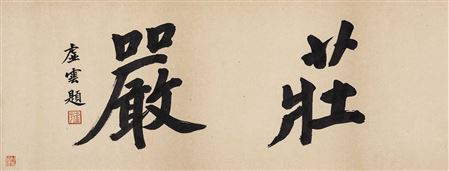 莊嚴
虛雲題